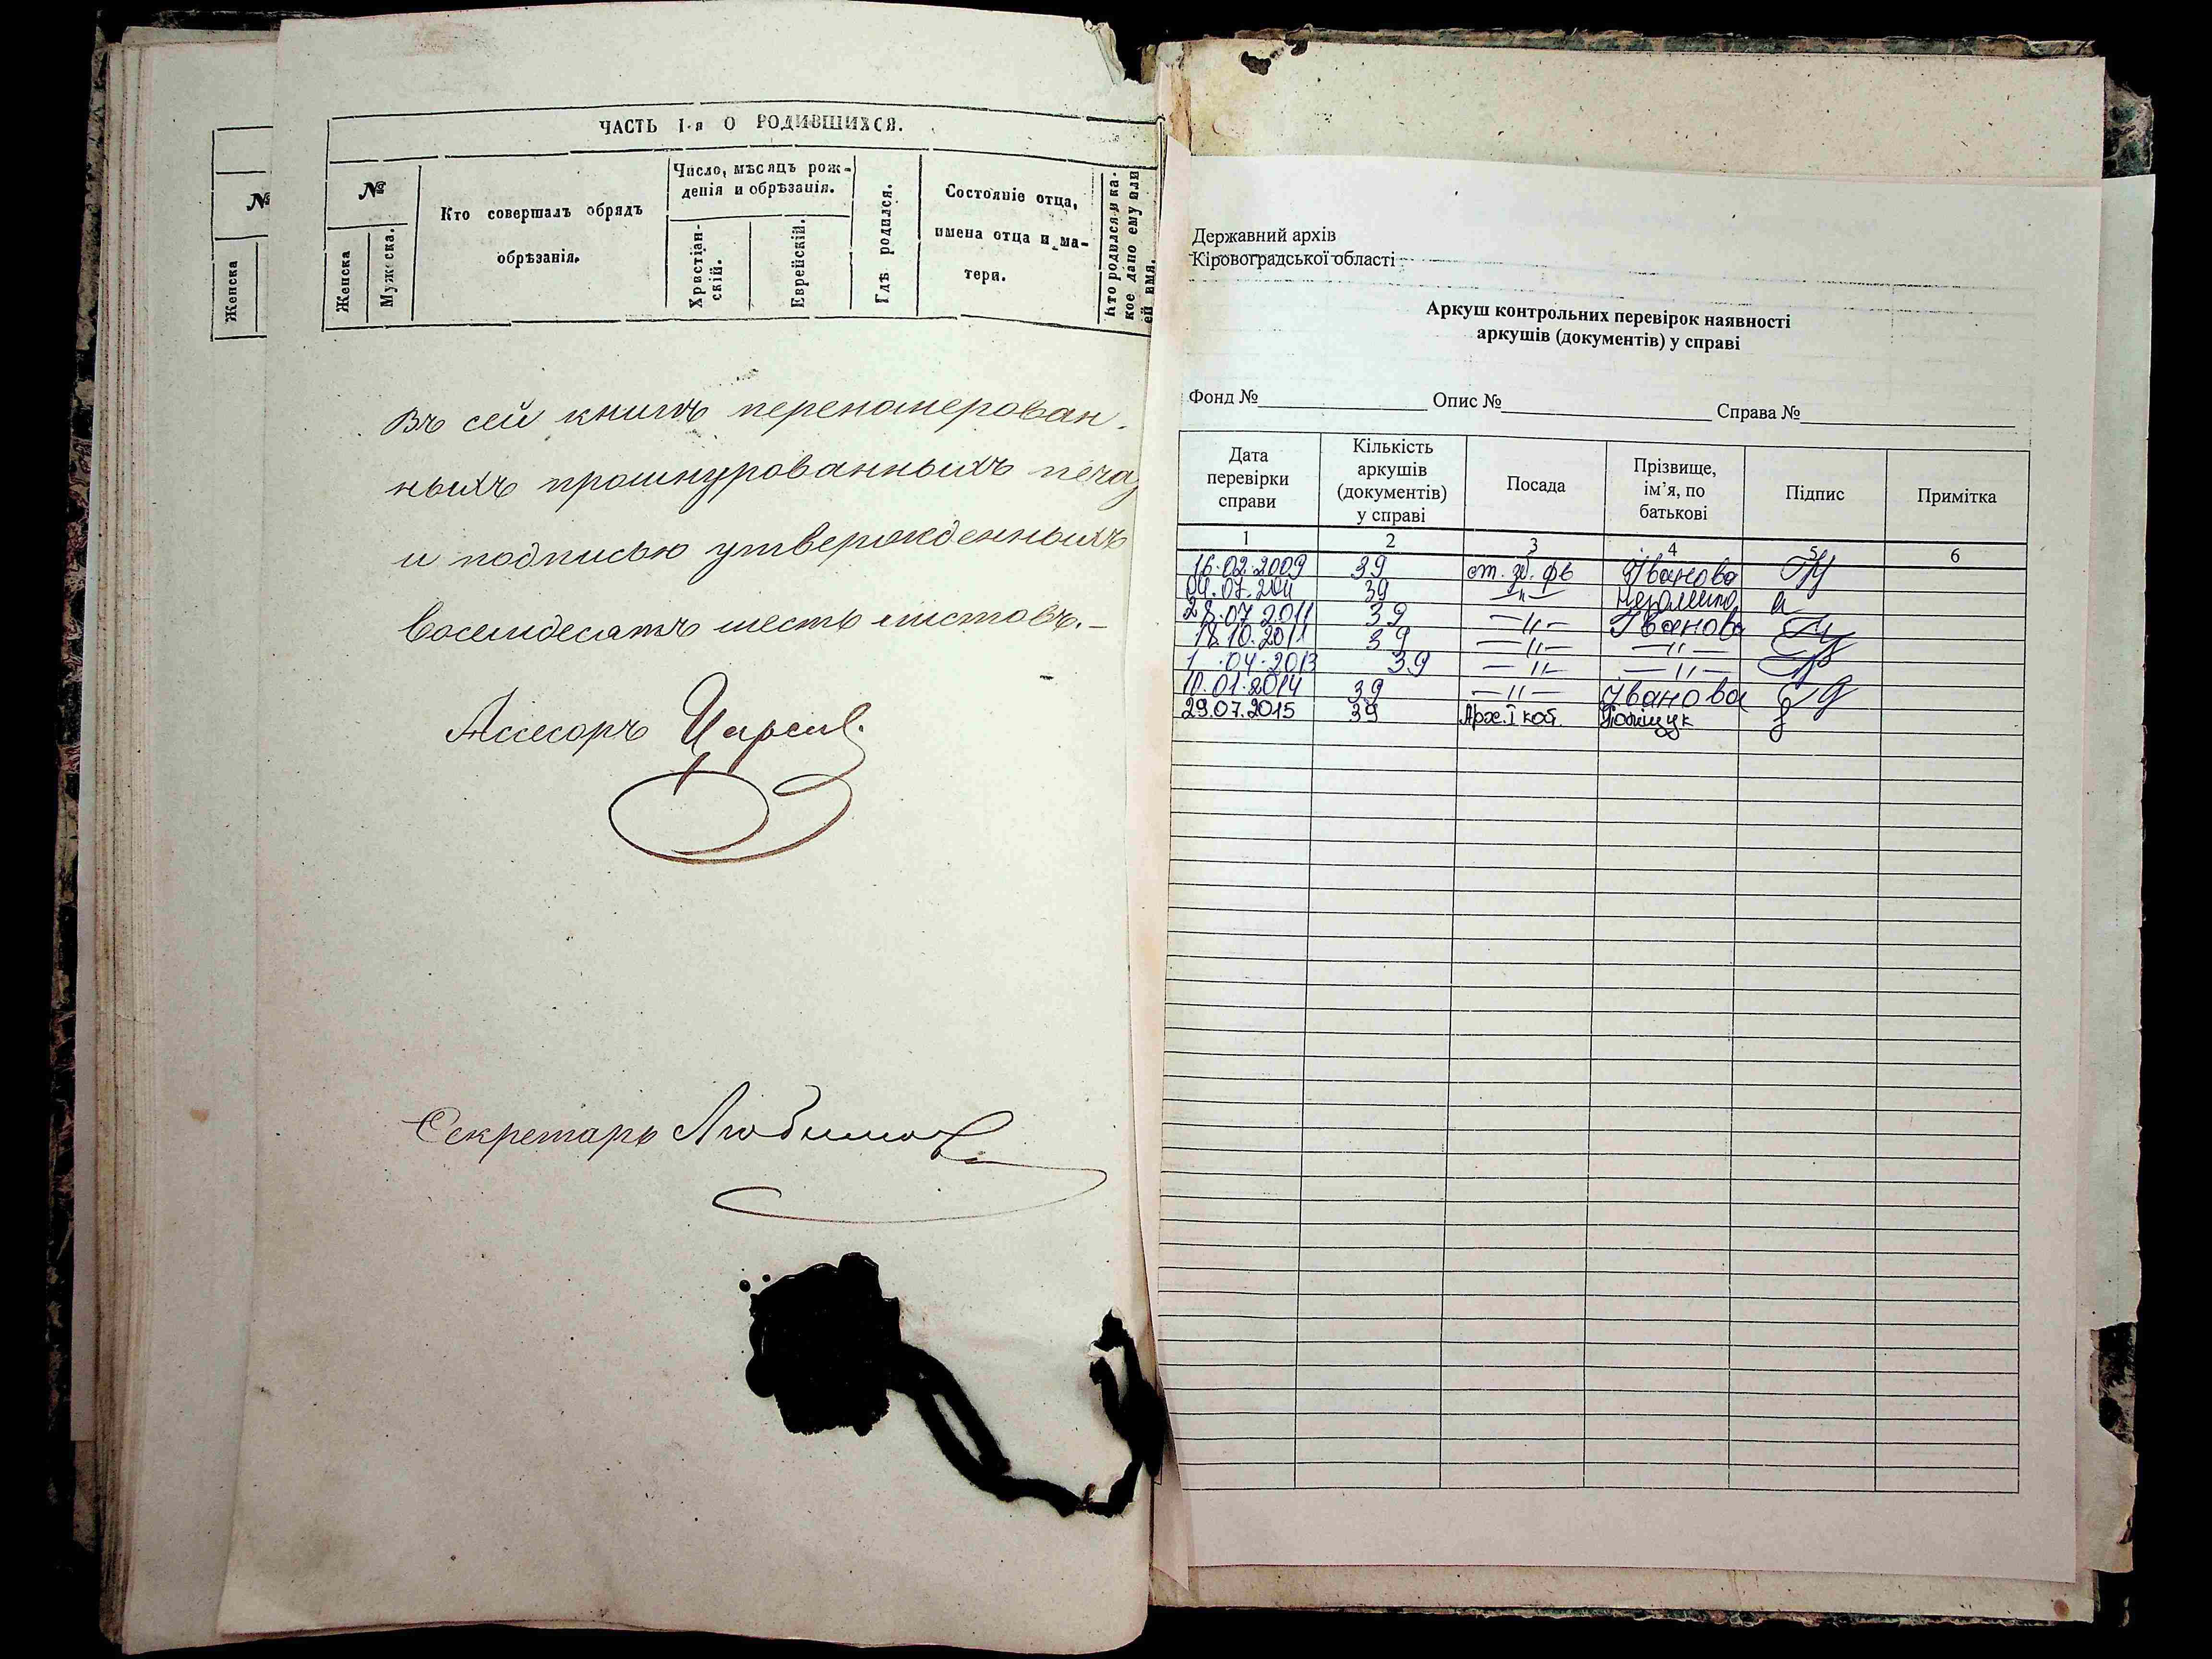 №
Женска
ЧАСТЬ I-я О РОДИВШИХСЯ.
№
Женска
Мужеска.
Кто совершалъ обрядъ
обрѣзанія.
Число, мѣсяцъ рож-
денія и обрѣзанія.
Христіан-
скій.
Еврейскій.
Гдѣ родился.
Состояніе отца,
имена отца и ма-
тери.
Кто родился и ка-
кое дано ему или
ей имя.
Въ сей книгѣ переномерован-
ныхъ прошнурованныхъ
и подписью утвержденныхъ
восемдесятъ шесть листовъ.-
Ассесоръ
Секретарь Любимов
Державний архів
Кіровоградської області
Аркуш контрольних перевірок наявності
аркушів (документів) у справі
Фонд № Опис № Справа №
Дата
перевірки
справи
Кількість
аркушів
(документів)
у справі
Посада
Прізвище,
ім’я, по
батькові
Підпис
Примітка
1 2 3 4 5 6
16.02.2009 39 ст. зб. фв Іванова
04.07.2011 39 -"-
28.07.2011 39 -"- Іванова
18.10.2011 39 -"- -"-
1 .04.2013 39 -"- -"-
10.01.2014 39 -"- Іванова
29.07.2015 39 Арх. І кат.